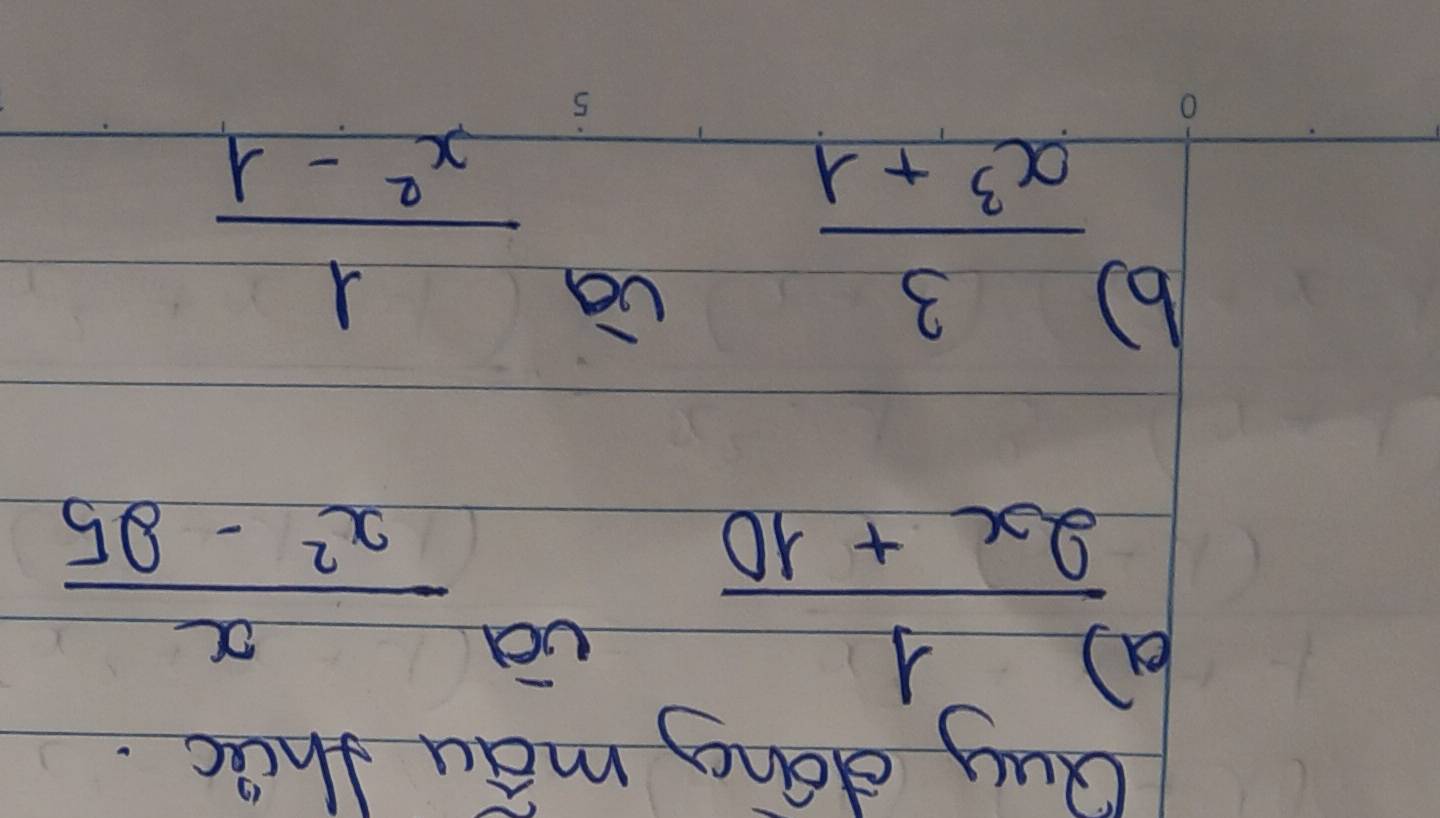 Quy đồng mẫu thức.
a) 1 / 2x + 10 và x / x² - 25
b) 3 / x³ + 1 và 1 / x² - 1
0 5